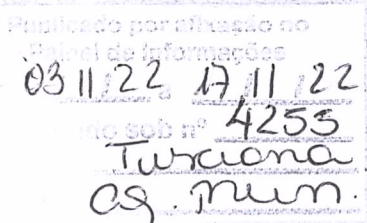 Publicado por afixação no
Painel de Informações
03 11 22 a 17 11 22
sob nº 4255
Tusciana
Ag. Mun.